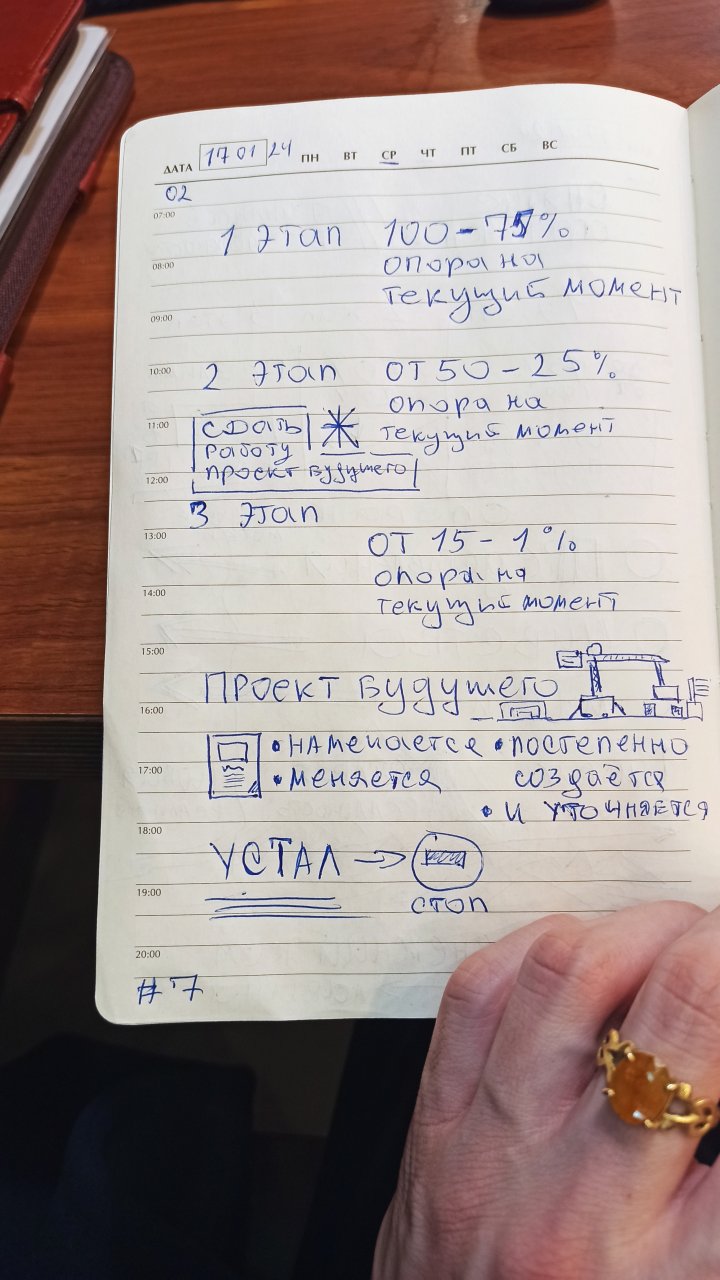 ДАТА 17 01 24 ПН ВТ СР ЧТ ПТ СБ ВС
02
07:00
1 Этап 100-75%
08:00 опора на
текущий момент
09:00
10:00 2 Этап ОТ 50-25%
опора на
11:00 СДАТЬ * текущий момент
работу
12:00 проект будущего
3 Этап
13:00 ОТ 15-1%
опора на
14:00 текущий момент
15:00
ПРОЕКТ БУДУЩЕГО
16:00
• намечается • постепенно
17:00 • меняется создаётся
• и уточняется
18:00
УСТАЛ →
19:00 стоп
20:00
#7